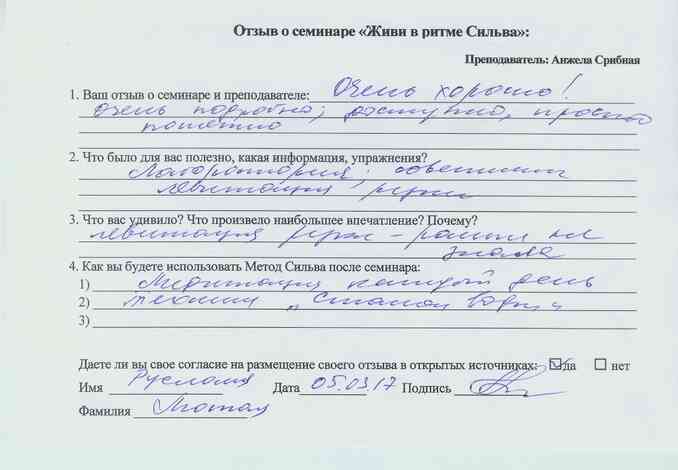 Отзыв о семинаре «Живи в ритме Сильва»:
Преподаватель: Анжела Срибная
1. Ваш отзыв о семинаре и преподавателе: Очень хорошо!
очень подробно, доступно, просто
понятно
2. Что было для вас полезно, какая информация, упражнения?
Лаборатория,
левитация руки
3. Что вас удивило? Что произвело наибольшее впечатление? Почему?
левитация руки – раньше не
знала
4. Как вы будете использовать Метод Сильва после семинара:
1) Медитация каждый день
2) техники „Стакан воды"
3)
Даете ли вы свое согласие на размещение своего отзыва в открытых источниках: да нет
Имя Руслана Дата 05.03.17 Подпись
Фамилия